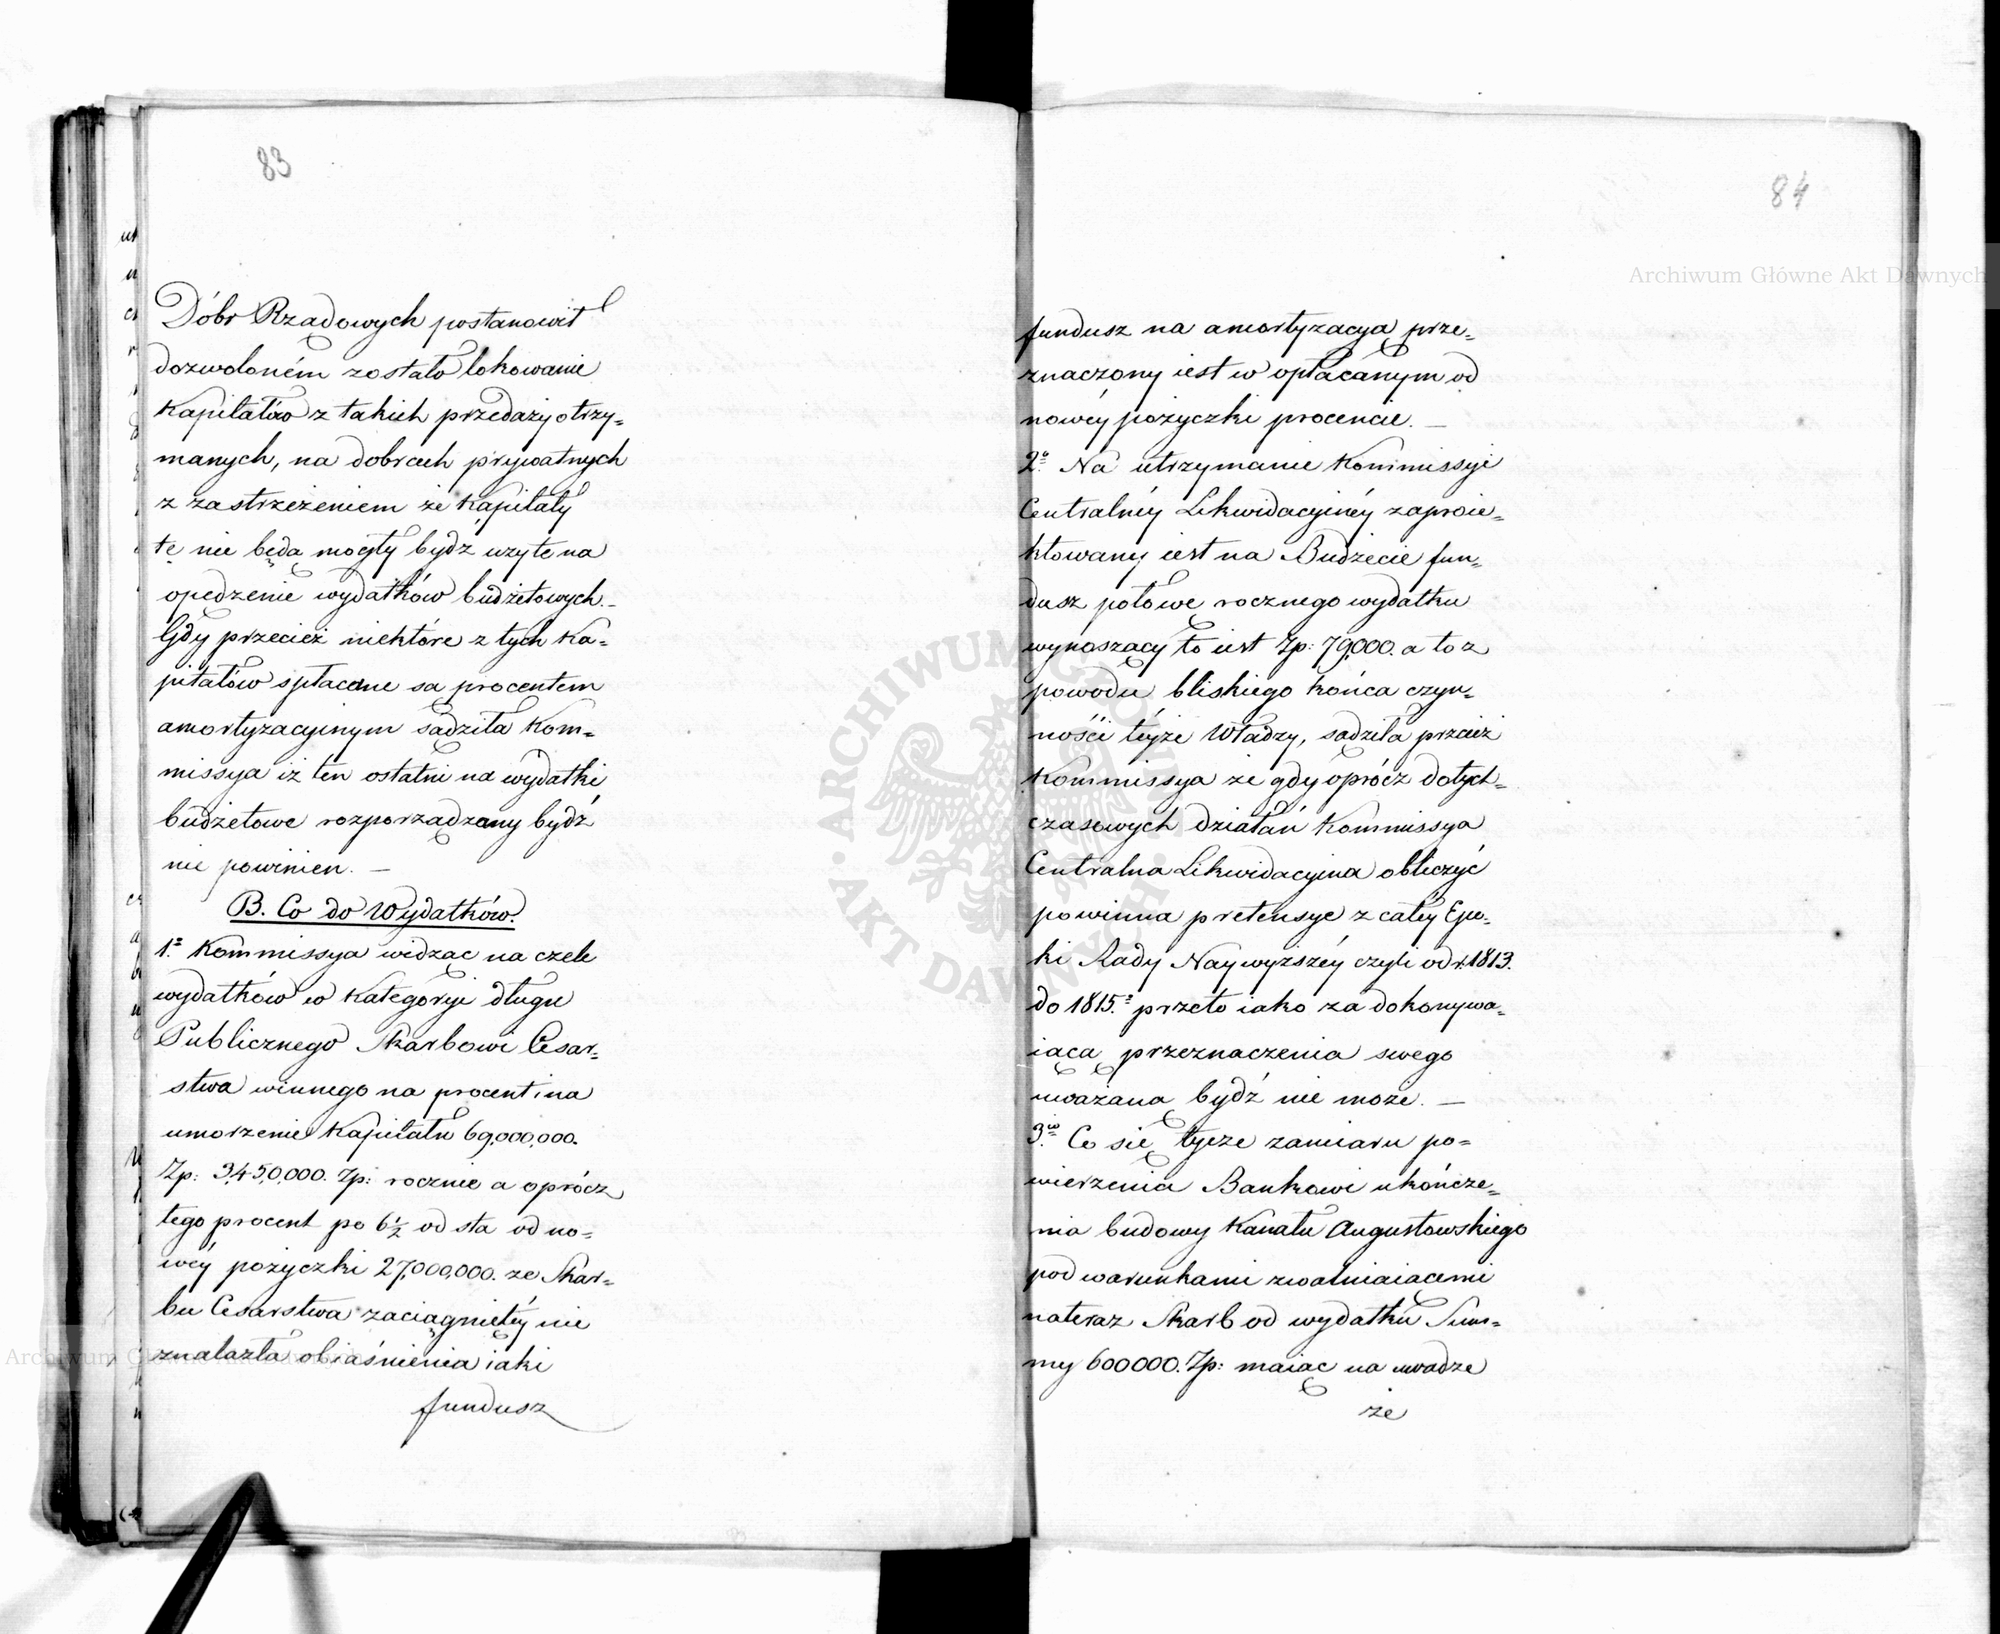 83
Dóbr Rządowych postanowił
dozwoloném zostało lokowanie
Kapitałów z takich przedaży otrzy=
manych, na dobrach prywatnych
z zastrzeżeniem że Kapitały
te nie będą mogły bydź uzyte na
opędzenie wydatków budżetowych._
Gdy przecież niektóre z tych Ka=
pitałów spłacane są procentem
amortyzacyinym sądziła Kom=
missya iż ten ostatni na wydatki
budżetowe rozporządzany bydź
nie powinien. —
B. Co do Wydatków.
1º Kommissya widząc na czele
wydatków w Kategoryi długu
Publicznego Skarbowi Cesar=
stwa winnego na procent i na
umorzenie Kapitału 69,000,000.
Zp: 3,450,000. Zp: rocznie a oprócz
tego procent po 6½ od sta od no=
wéy pożyczki 27,000,000. ze Skar=
bu Cesarstwa zaciągniętéy nie
znalazła obiaśnienia iaki
fundusz
84
fundusz na amortyzacyą prze=
znaczony iest w opłacanym od
nowéy pożyczki procencie. —
2º Na utrzymanie Kommissyi
Centralnéy Likwidacyinéy zaproie=
ktowany iest na Budżecie fun=
dusz połowę rocznego wydatku
wynoszący to iest Zp: 79,000. a to z
powodu bliskiego końca czyn=
ności téyże Władzy, sądziła przcież
Kommissya że gdy oprócz dotych=
czasowych działań Kommissya
Centralna Likwidacyina obliczyć
powinna pretensye z całéy Epo=
ki Rady Naywyższéy czyli od r. 1813.
do 1815.º przeto iako za dokonywa=
iącą przeznaczenia swego
uważana bydź nie może. —
3io Co się tycze zamiaru po=
wierzenia Bankowi ukończe=
nia budowy Kanału Augustowskiego
pod warunkami zwalniaiącemi
nateraz Skarb od wydatku Sum=
my 600000. Zp: maiąc na uwadze
że
Archiwum Główne Akt Dawnych
ARCHIWUM GŁÓWNE AKT DAWNYCH